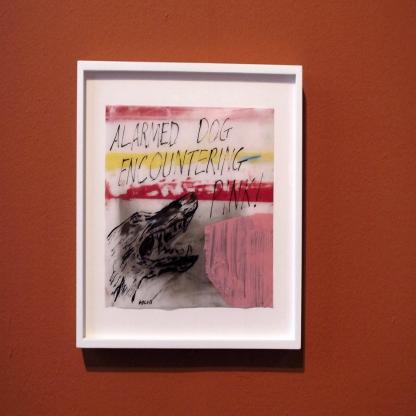 ALARMED DOG
ENCOUNTERING
PINK!